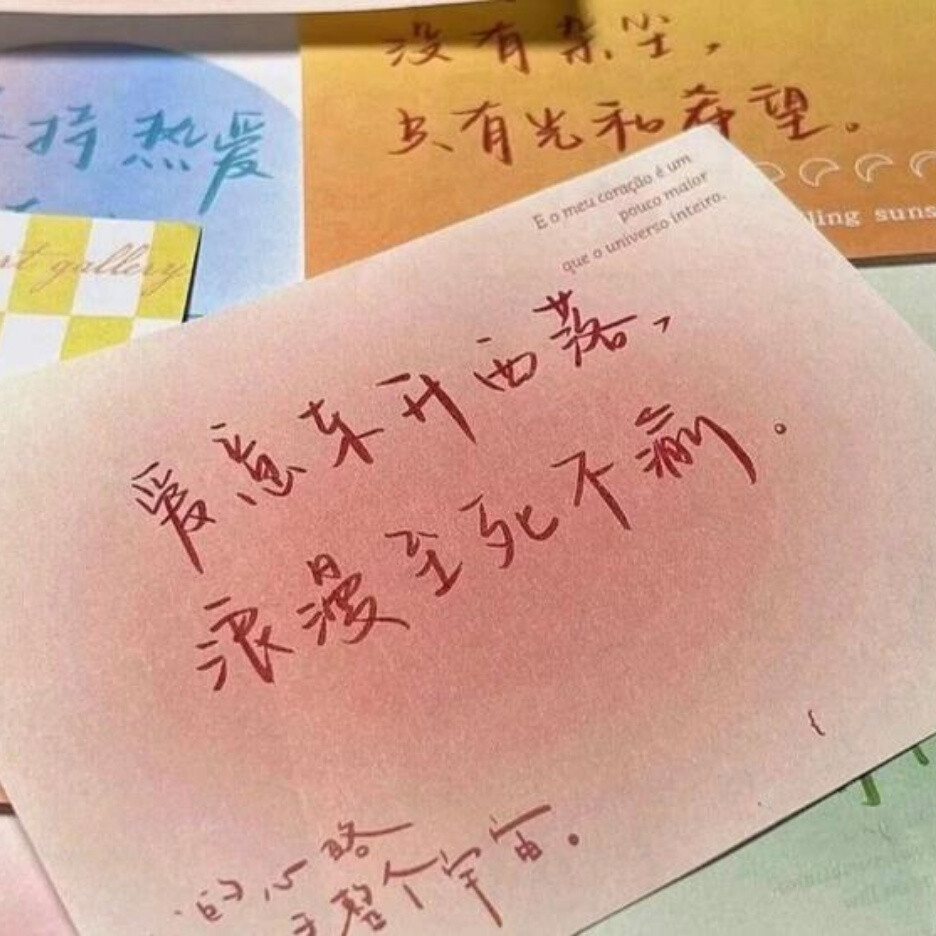 没有杂尘，
只有光和希望。
持热爱
art gallery
ling suns
E o meu coração é um
pouco maior
que o universo inteiro.
爱意东升西落，
浪漫至死不渝。
的心略
于整个宇宙。